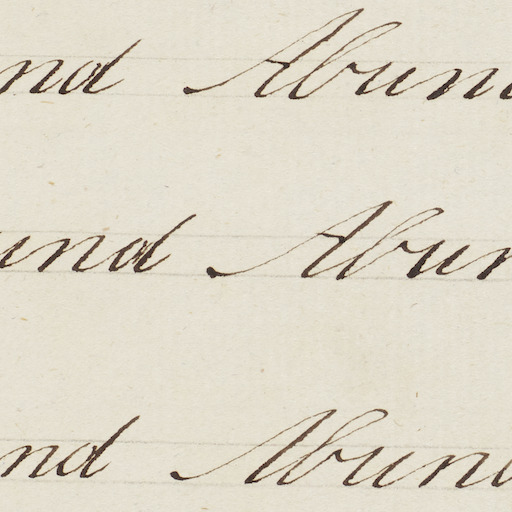 nd Abun
und Abun
nd Abund